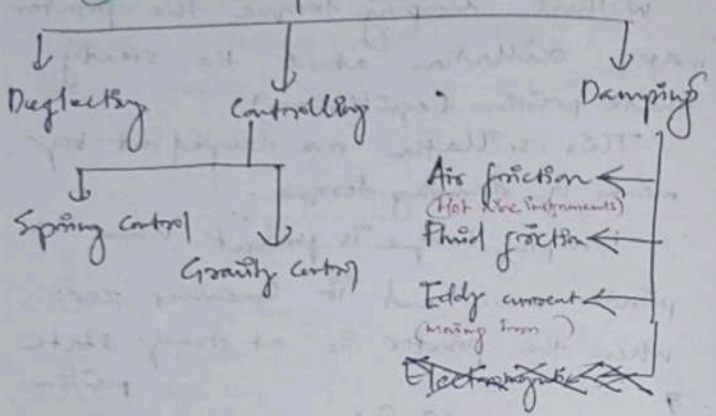 Deglecting
Controlling
Damping
Spring control
Gravity control
Air friction
(Hot wire instruments)
Fluid friction
Eddy current
(moving iron )